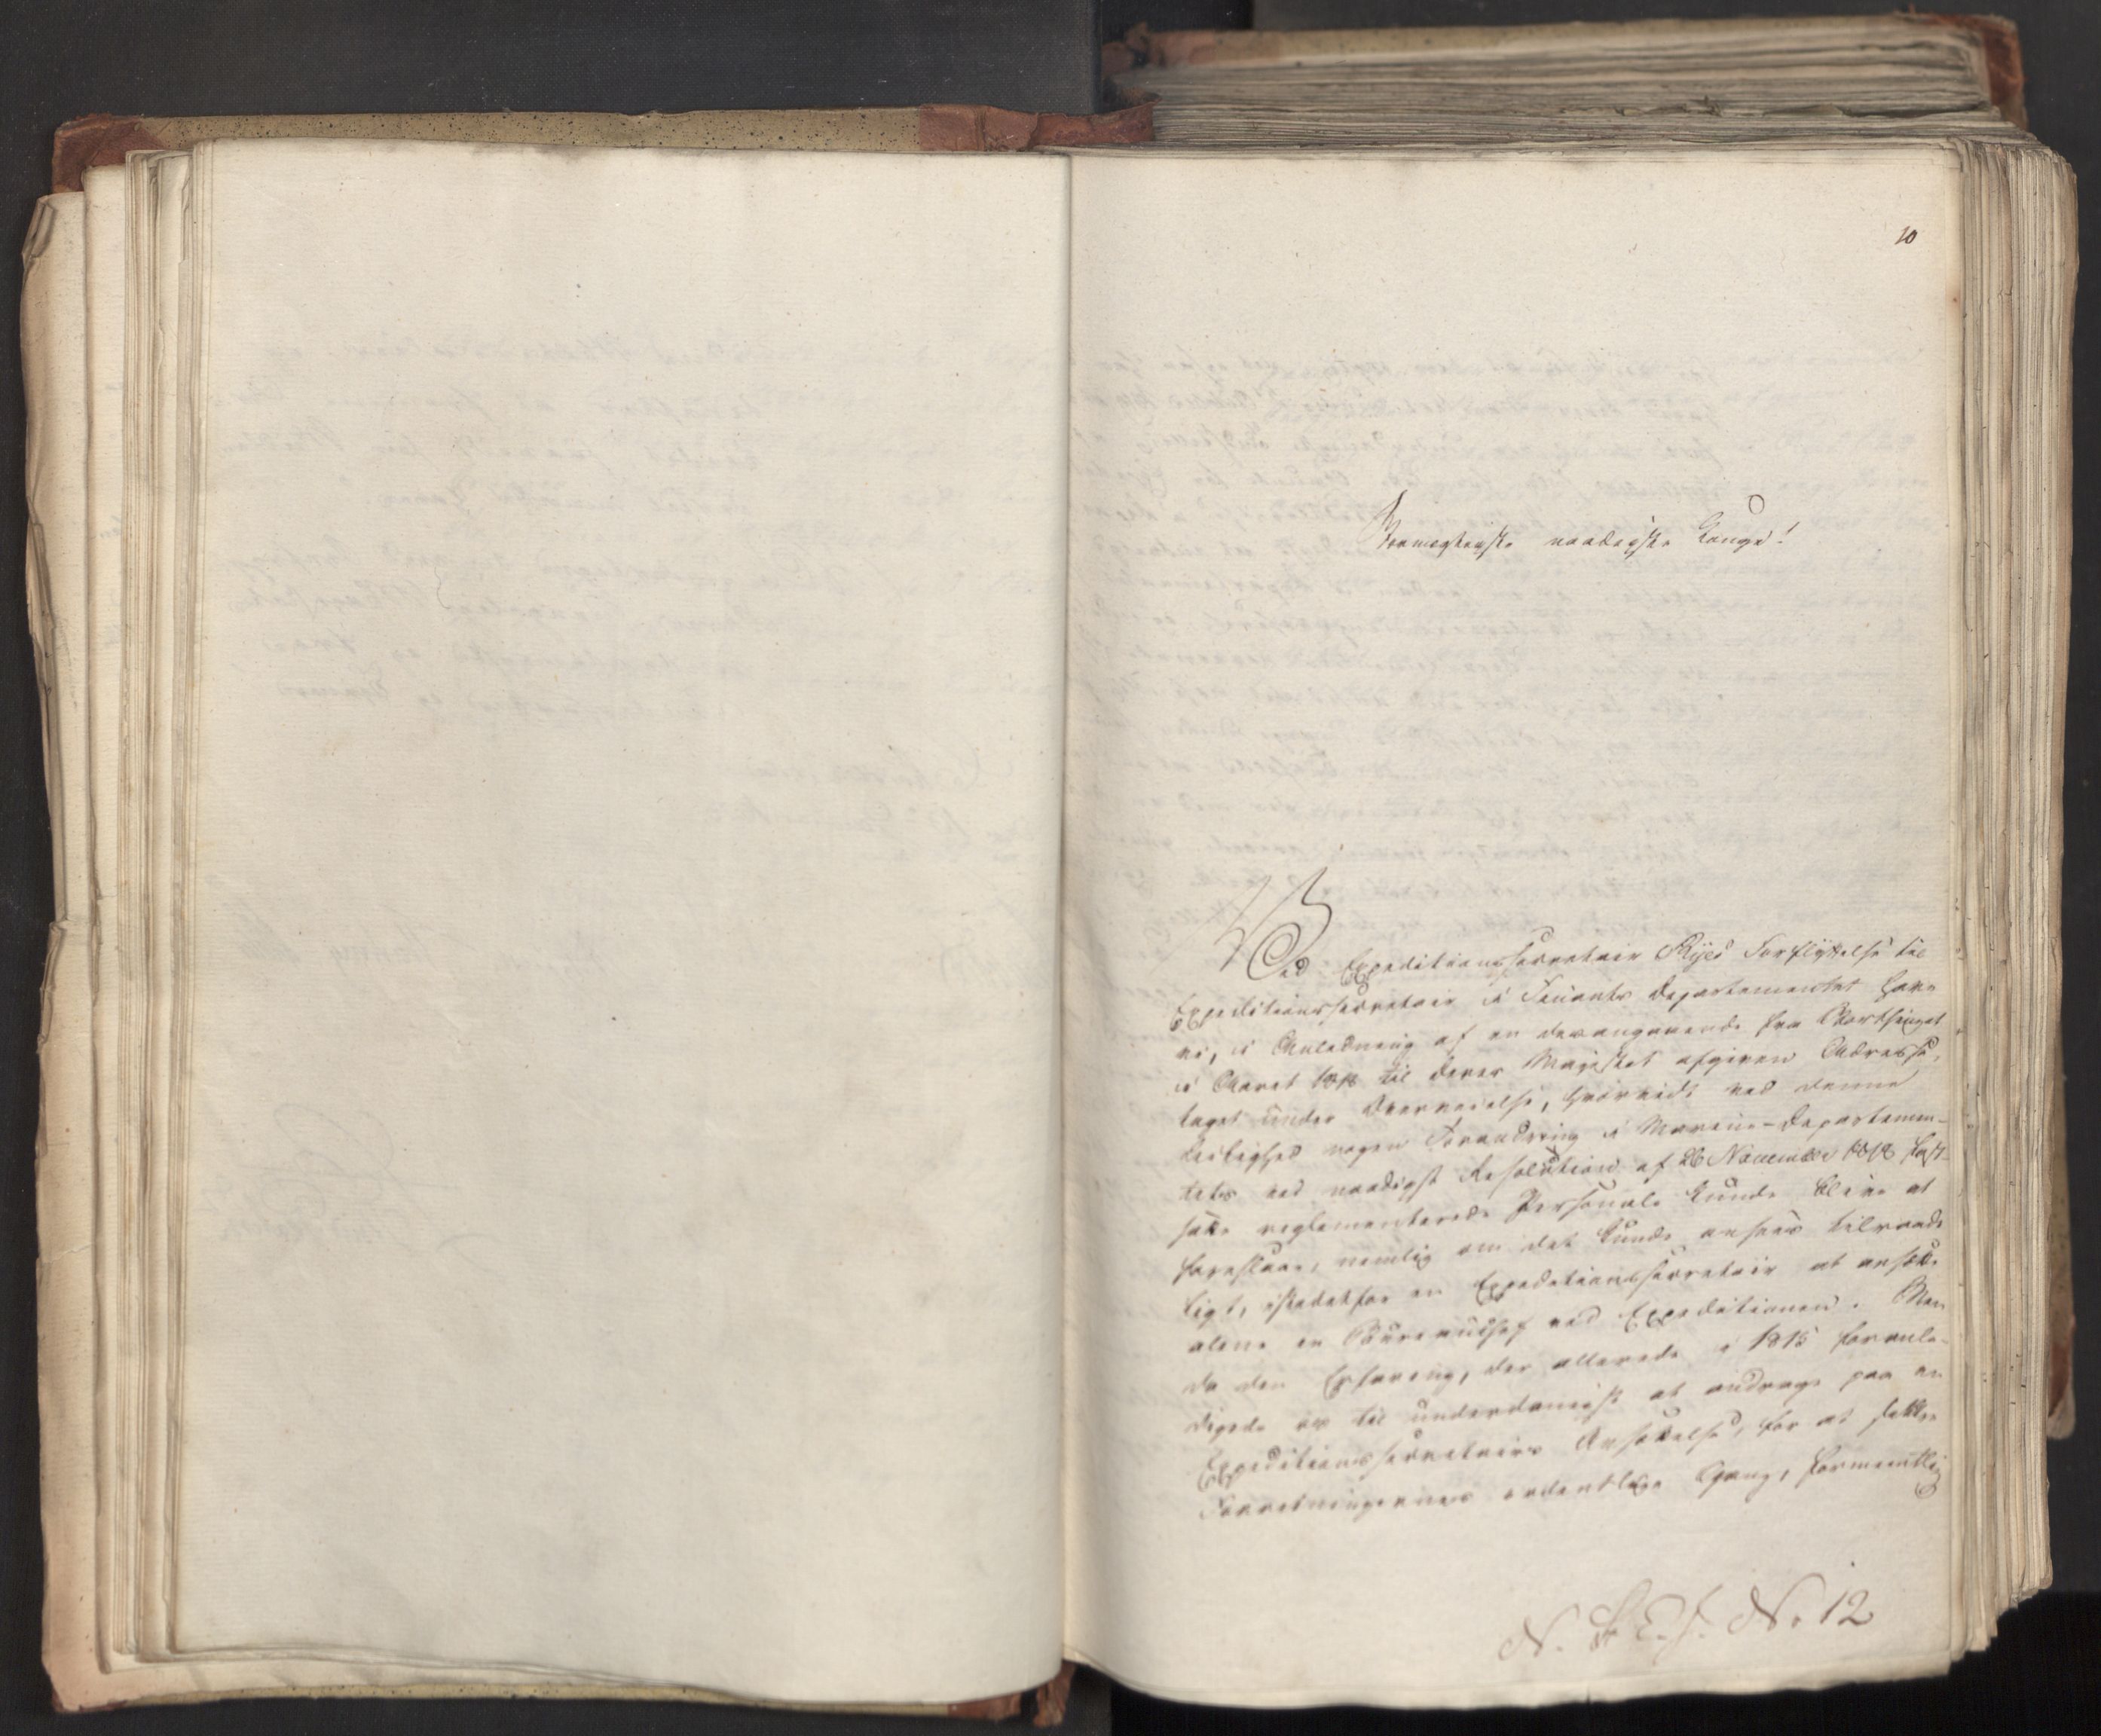 10
Stormægtigste naadigste Konge!
Ved Expeditionssecretair Ryes Forflyttelse til
Expeditionssecretair i Finants Departementet have
vi, i Anledning af en desangaaende fra Storthinget
i Aaret 1818 til Deres Majestæt afgiven Adresse,
taget under Overveielse, hvorvidt ved denne
Leilighed nogen Forandring i Marine-Departemen-
tets ved naadigst Resolution af 26 November 1818 fast-
satte reglementerede Personale kunde blive at
foreslaae, nemlig om det kunde ansees tilraade
ligt, istedetfor en Expeditionssecretair at ansætte
alene en Bureauchef ved Expeditionen. Men
da den Erfaring, der allerede i 1815 foranle-
digede os til underdanigst at andrage paa en
Expeditionssecretairs Ansættelse, for at sikkre
Forretningernes ordentlige Gang, formeentlig
N. St. E. f. No 12